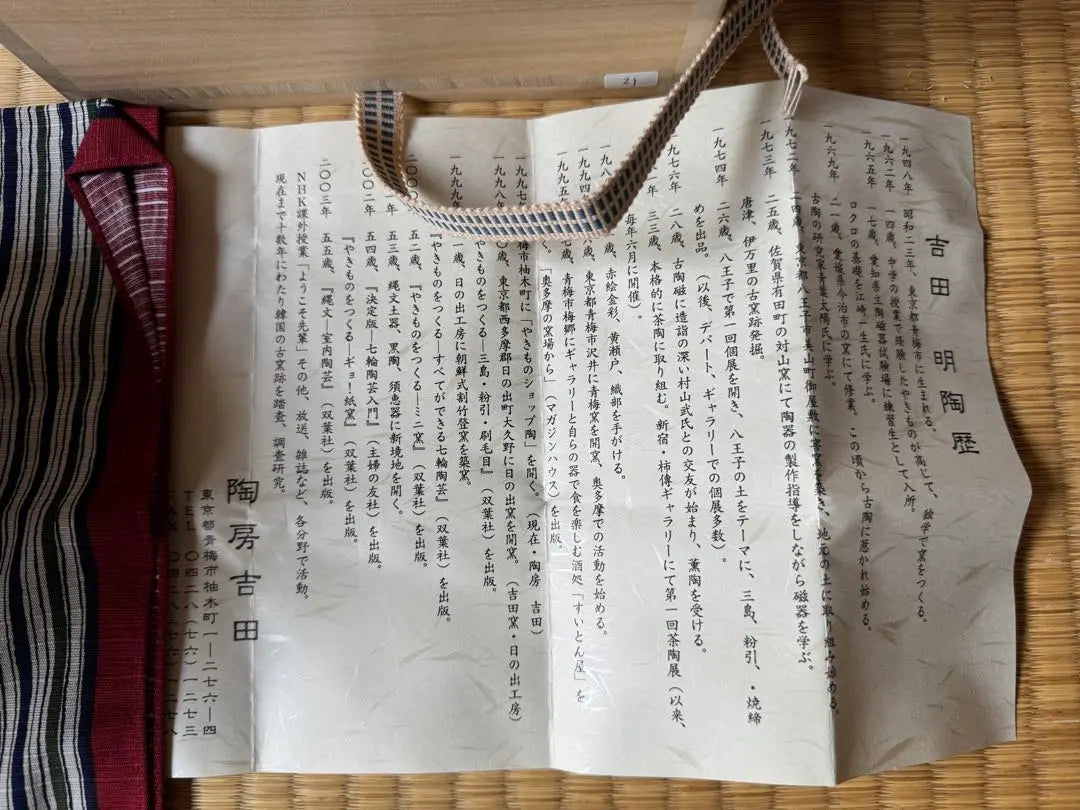 21
吉田 明陶歴
一九四八年 昭和二三年、東京都青梅市に生まれる。
一九六二年 一四歳、中学の授業で経験したやきものが高じて、独学で窯をつくる。
一九六五年 一七歳、愛知県立陶磁器試験場に練習生として入所。
ロクロの基礎を江崎一生氏に学ぶ。
一九六九年 二一歳、愛媛県今治市の窯にて修業。この頃から古陶に惹かれ始める。
古陶の研究家青葉太陽氏に学ぶ。
一九七二年 二四歳、東京都八王子市美山町御屋敷に害窯を築き、地元の土に取り組み始める。
一九七三年 二五歳、佐賀県有田町の対山窯にて陶器の製作指導をしながら磁器を学ぶ。
唐津、伊万里の古窯跡発掘。
一九七四年 二六歳、八王子で第一回個展を開き、八王子の土をテーマに、三島、粉引、・焼締
めを出品。(以後、デパート、ギャラリーでの個展多数)
一九七六年 二八歳、古陶磁に造詣の深い村山武氏との交友が始まり、薫陶を受ける。
年 三三歳、本格的に茶陶に取り組む。新宿・柿傳ギャラリーにて第一回茶陶展(以来、
毎年六月に開催)。
歳、赤絵金彩、黄瀬戸、織部を手がける。
一九九四年 歳、東京都青梅市沢井に青梅窯を開窯、奥多摩での活動を始める。
一九九五年 七歳、青梅市梅郷にギャラリーと自らの器で食を楽しむ酒処「すいとん屋」を
「奥多摩の窯場から」(マガジンハウス)を出版。
一九九七 梅市柚木町に「やきものショップ陶」を開く。(現在・陶房 吉田)
一九九八年 歳、東京都西多摩郡日の出町大久野に日の出窯を開窯。(吉田窯・日の出工房)
きものをつくる―三島・粉引・刷毛目』(双葉社)を出版。
一九九九 一歳、日の出工房に朝鮮式割竹登窯を築窯。
『やきものをつくる―すべてができる七輪陶芸』(双葉社)を出版。
二〇〇〇 五二歳、『やきものをつくる―ミニ窯』(双葉社)を出版。
年 五三歳、縄文土器、黒陶、須恵器に新境地を開く。
二〇〇二年 五四歳、『決定版―七輪陶芸入門』(主婦の友社)を出版。
『やきものをつくる―ギョ!紙窯』(双葉社)を出版。
二〇〇三年 五五歳、『縄文―室内陶芸』(双葉社)を出版。
NHK課外授業「ようこそ先輩」その他、放送、雑誌など、各分野で活動。
現在まで十数年にわたり韓国の古窯跡を踏査、調査研究。
陶房吉田
東京都青梅市柚木町一―二七六―四
TEL 〇四二八(七六)一二七三
FAX 〇四二八(七六)一二七八